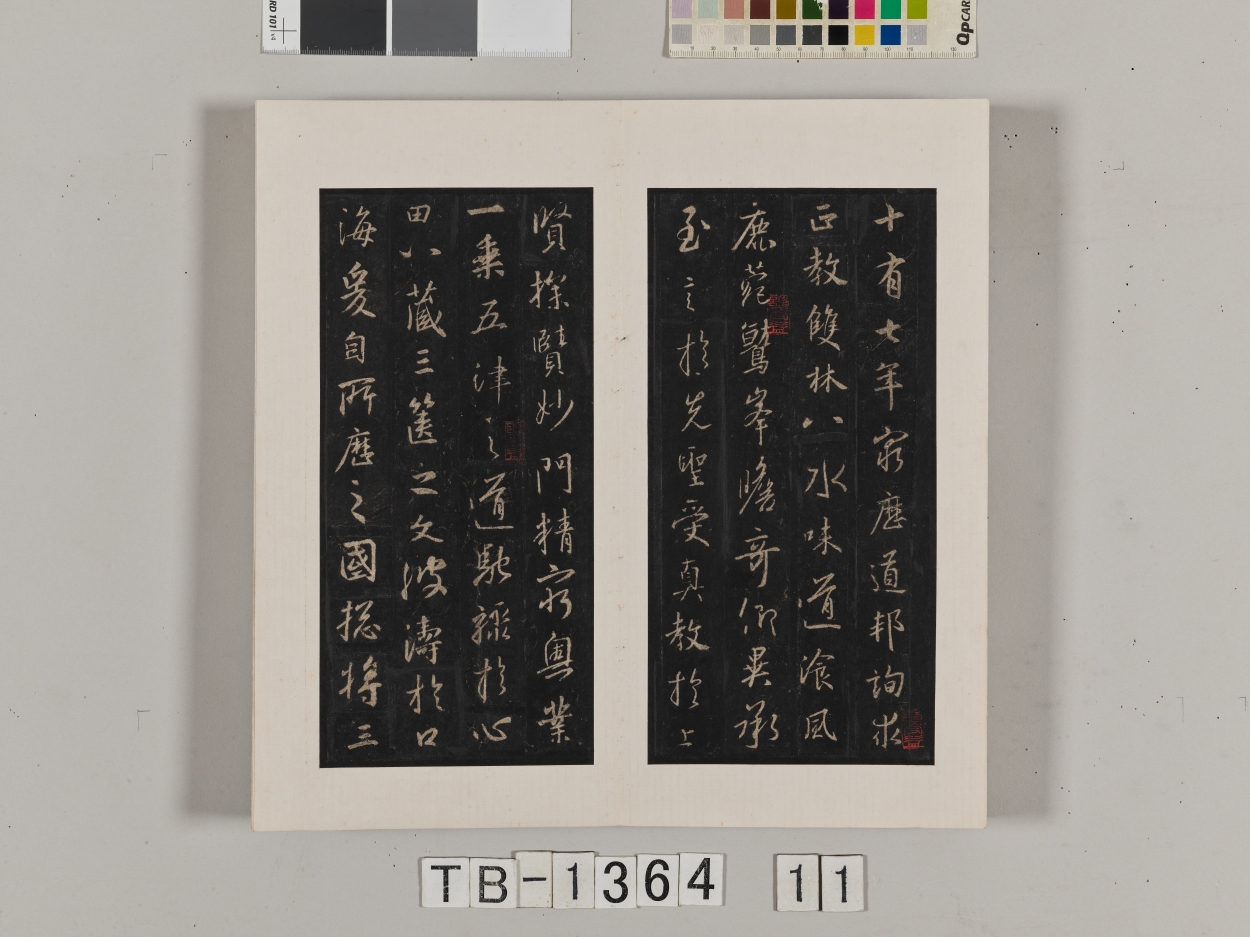 十有七年窮歷道邦詢求
正教雙林八水味道飡風
鹿菀鷲峯瞻奇仰異承
至言於先聖受真教於上
賢探賾妙門精窮奧業
一乘五津之道馳驟於心
田八藏三篋之文波濤於口
海爰自所歷之國揔將三
TB-1364 11
QPCARD 101 v4
QPCARD